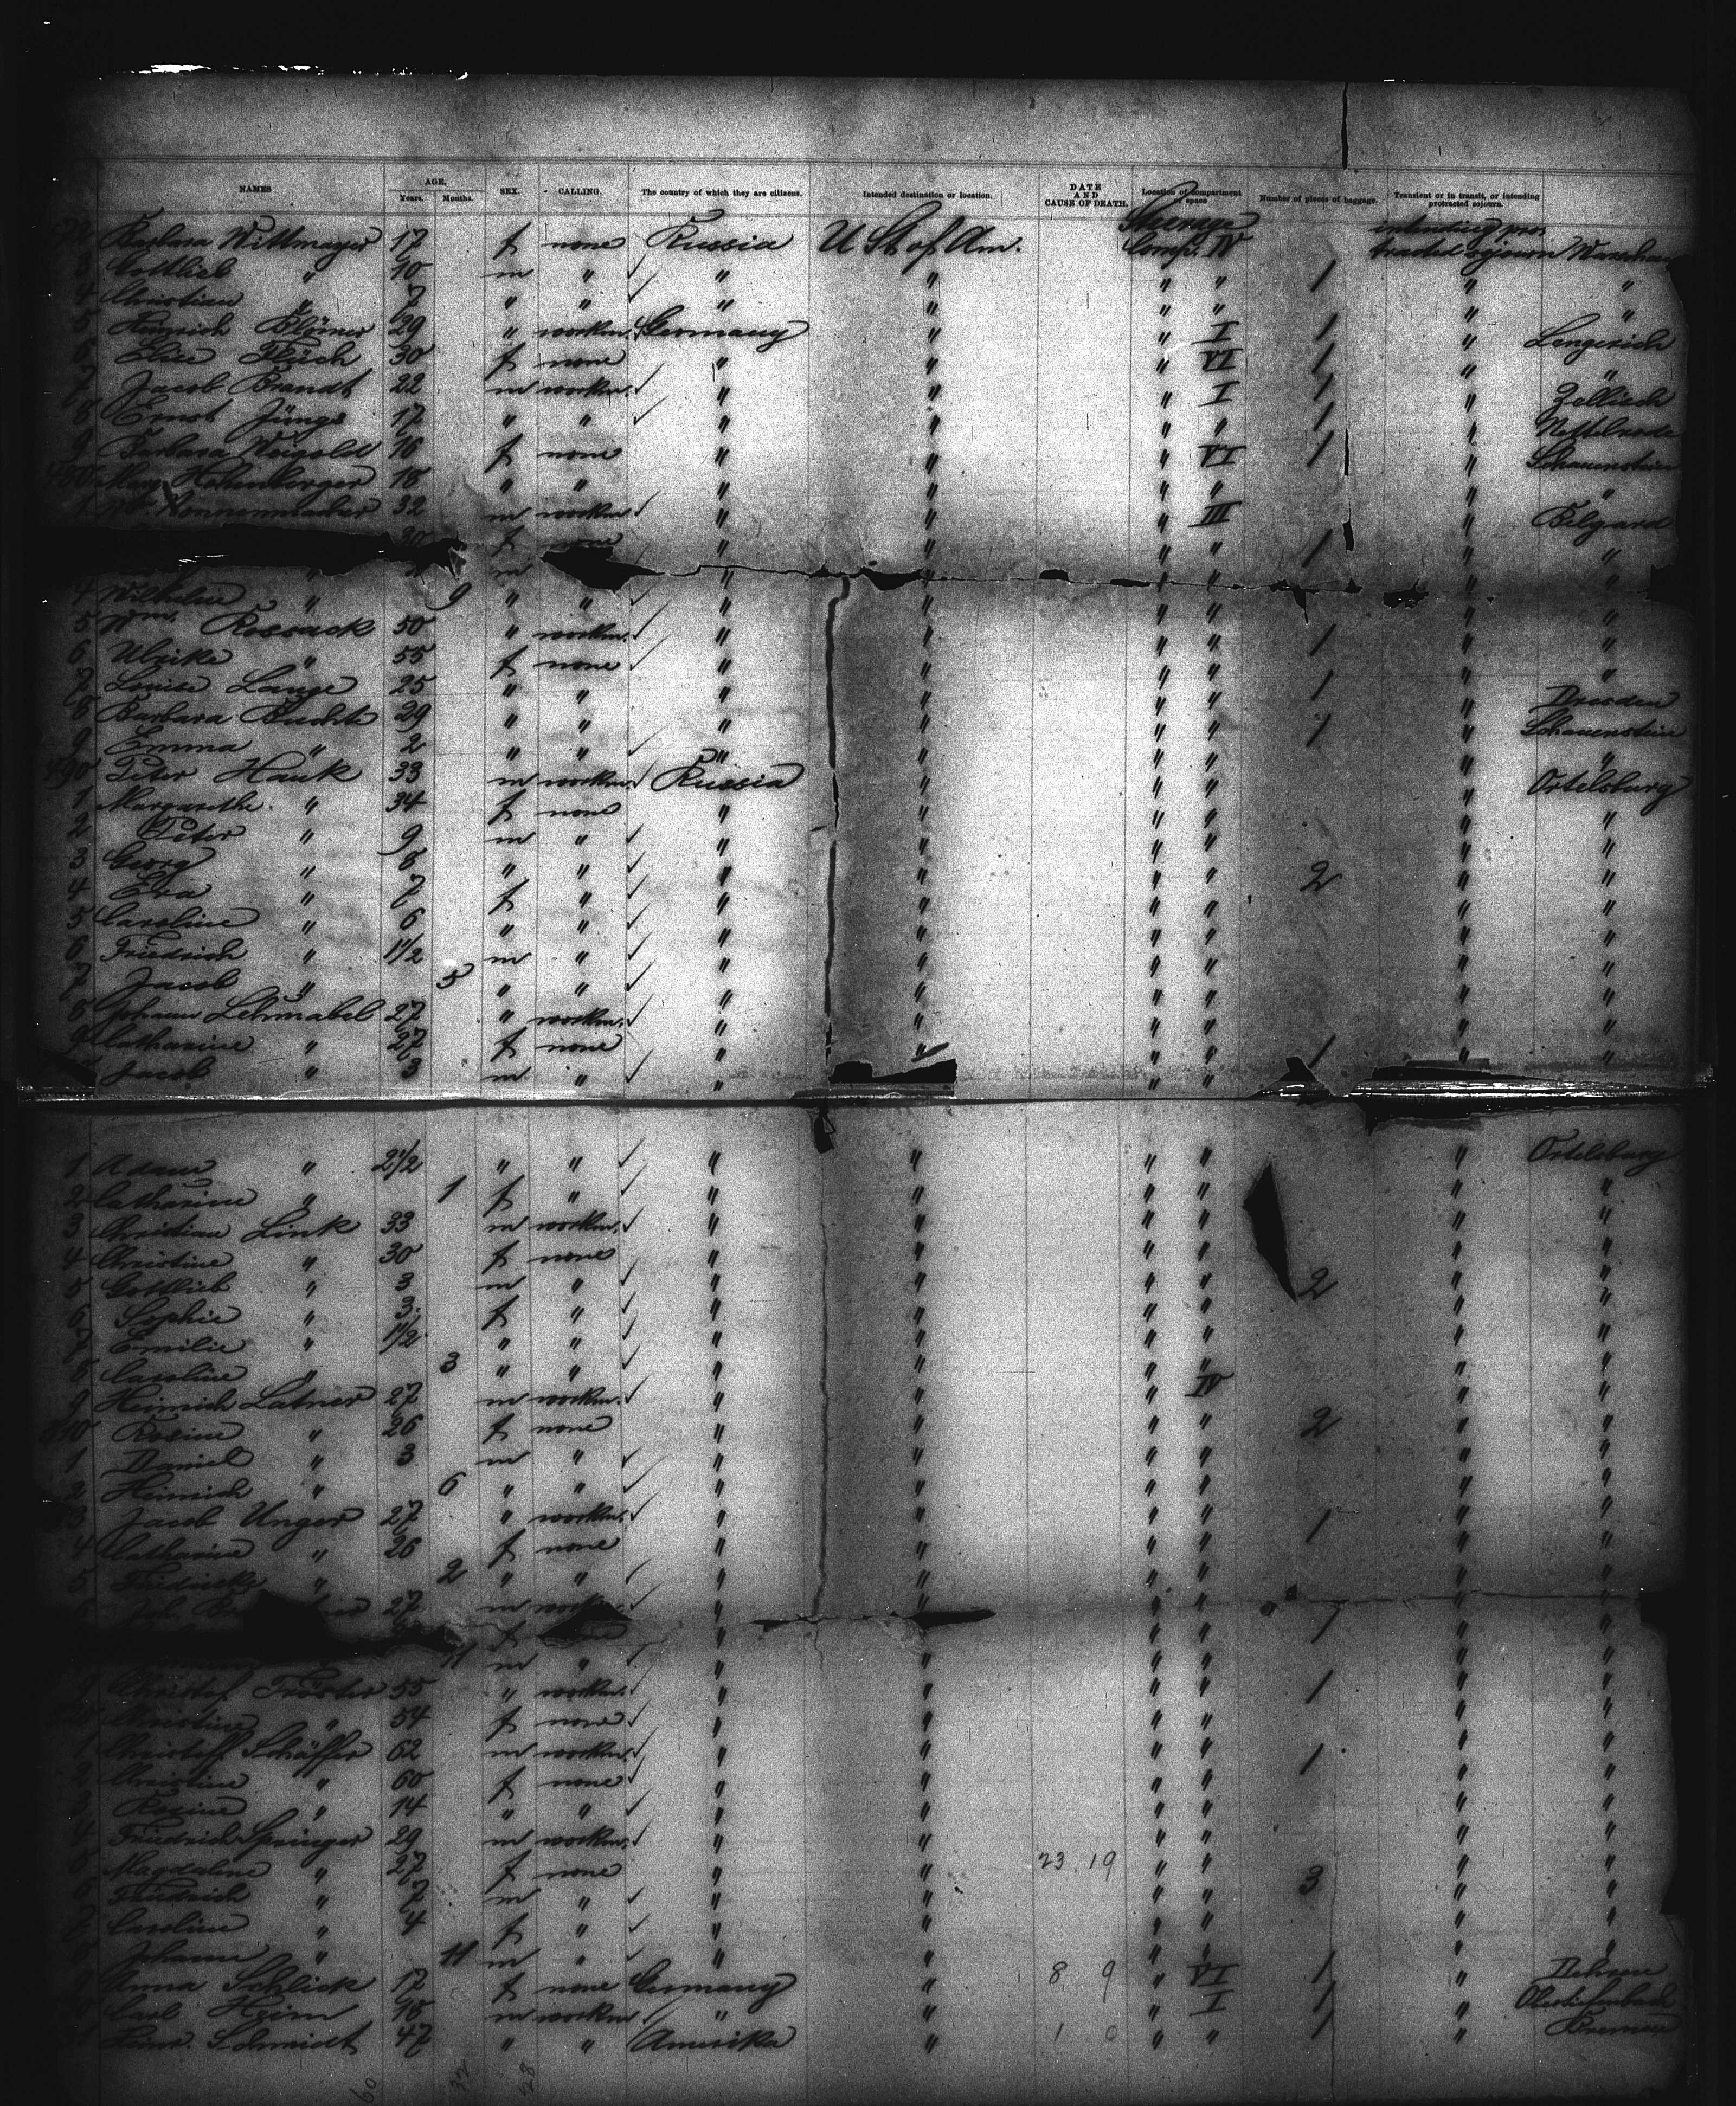 NAMES AGE, Years. Months. SEX. CALLING. The country of which they are citizens. Intended destination or location. DATE AND CAUSE OF DEATH. Location of compartment or space Number of pieces of baggage. Transient or in transit, or intending protracted sojourn.
Steerage intending pro-
Barbara Wittmayer 17 f none Russia U St. of Am. Comp. IV tracted sojourn
Gottlieb " 10 m " " " " " 1 " "
4 Christian " 7 " " " " " " " "
5 Heinrich Blömer 29 " workm. Germany " " I 1 " Lengerich
6 Elise 30 f none " " " VI 1 " "
7 Jacob Brandt 22 m workm. " " " I 1 "
8 Ernst Jünge 17 " " " " " " 1 "
9 Barbara Weigold 16 f none " " " VI 1 " Schauenstein
Marg. Hohenberger 18 " " " " " " " "
32 m workm. " " " III " Belgard
30 f none " " " " 1 " "
" m " " " "
4 Wilhelm " 9 " " " " " " " "
5 Wm. Rossack 50 " workm. " " " " 1 " "
6 Ulrike " 55 f none " " " " " "
7 Louise Lange 25 " " " " " " 1 " Dresden
8 Barbara 29 " " " " " " 1 " Schauenstein
9 Emma " 2 " " " " " " " "
490 Peter Hauk 33 m workm. Russia " " " " Ortelsburg
1 Margarethe " 34 f none " " " " " "
2 Peter " 9 m " " " " " " "
3 Georg " 8 " " " " " " 2 " "
4 Eva " 7 f " " " " " " "
5 Caroline " 6 " " " " " " " "
6 Friedrich " 1½ m " " " " " " "
7 Jacob " 5 " " " " " " " "
8 Johann Lehmabel 27 " workm. " " " " " "
9 Catharine " 27 f none " " " " 1 " "
Jacob " 3 m " " " "
1 Adam " 2½ " " " " " " " Ortelsburg
2 Catharine " 1 f " " " " " " "
3 Christian Link 33 m workm. " " " " " "
4 Christine " 30 f none " " " " " "
5 Gottlieb " 3 m " " " " " 2 " "
6 Sophie " 3 f " " " " " " "
7 Emilie " 1½ " " " " " " " "
8 Caroline " 3 " " " " " " " "
9 Heinrich Latner 27 m workm. " " " IV " "
510 Rosine " 26 f none " " " " 2 " "
1 Daniel " 3 m " " " " " " "
2 Heinrich " 6 " " " " " " " "
3 Jacob Unger 27 " workm. " " " " 1 " "
4 Catharine " 26 f none " " " " " "
5 Friedericke " 2 " " " " " " " "
6 Joh. 27 m workm. " " " " " "
f " " " " 1 " "
11 m " " " " " " "
Christof Tröster 55 " workm. " " " " 1 " "
Christine " 54 f none " " " " " "
1 Christoff Schäffer 62 m workm. " " " " 1 " "
2 Christine " 60 f none " " " " " "
3 Rosine " 14 " " " " " " " "
4 Friedrich Springer 29 m workm. " " " " " "
5 Magdaline " 27 f none " " 23 19 " " 3 " "
6 Friedrich " 7 m " " " " " " "
7 Caroline " 4 f " " " " " " "
8 Johann " 11 m " " " " " " "
9 Anna Schlick 17 f none Germany " 8 9 " VI 1 "
Carl Heim 18 m workm " " " I 1 "
Schmidt 47 " " Amerika " 1 0 " " 1 " Bremen
60 32 28